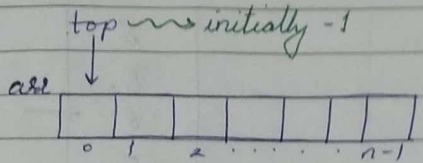 top initially -1
arr
0 1 2 . . . . . . n-1